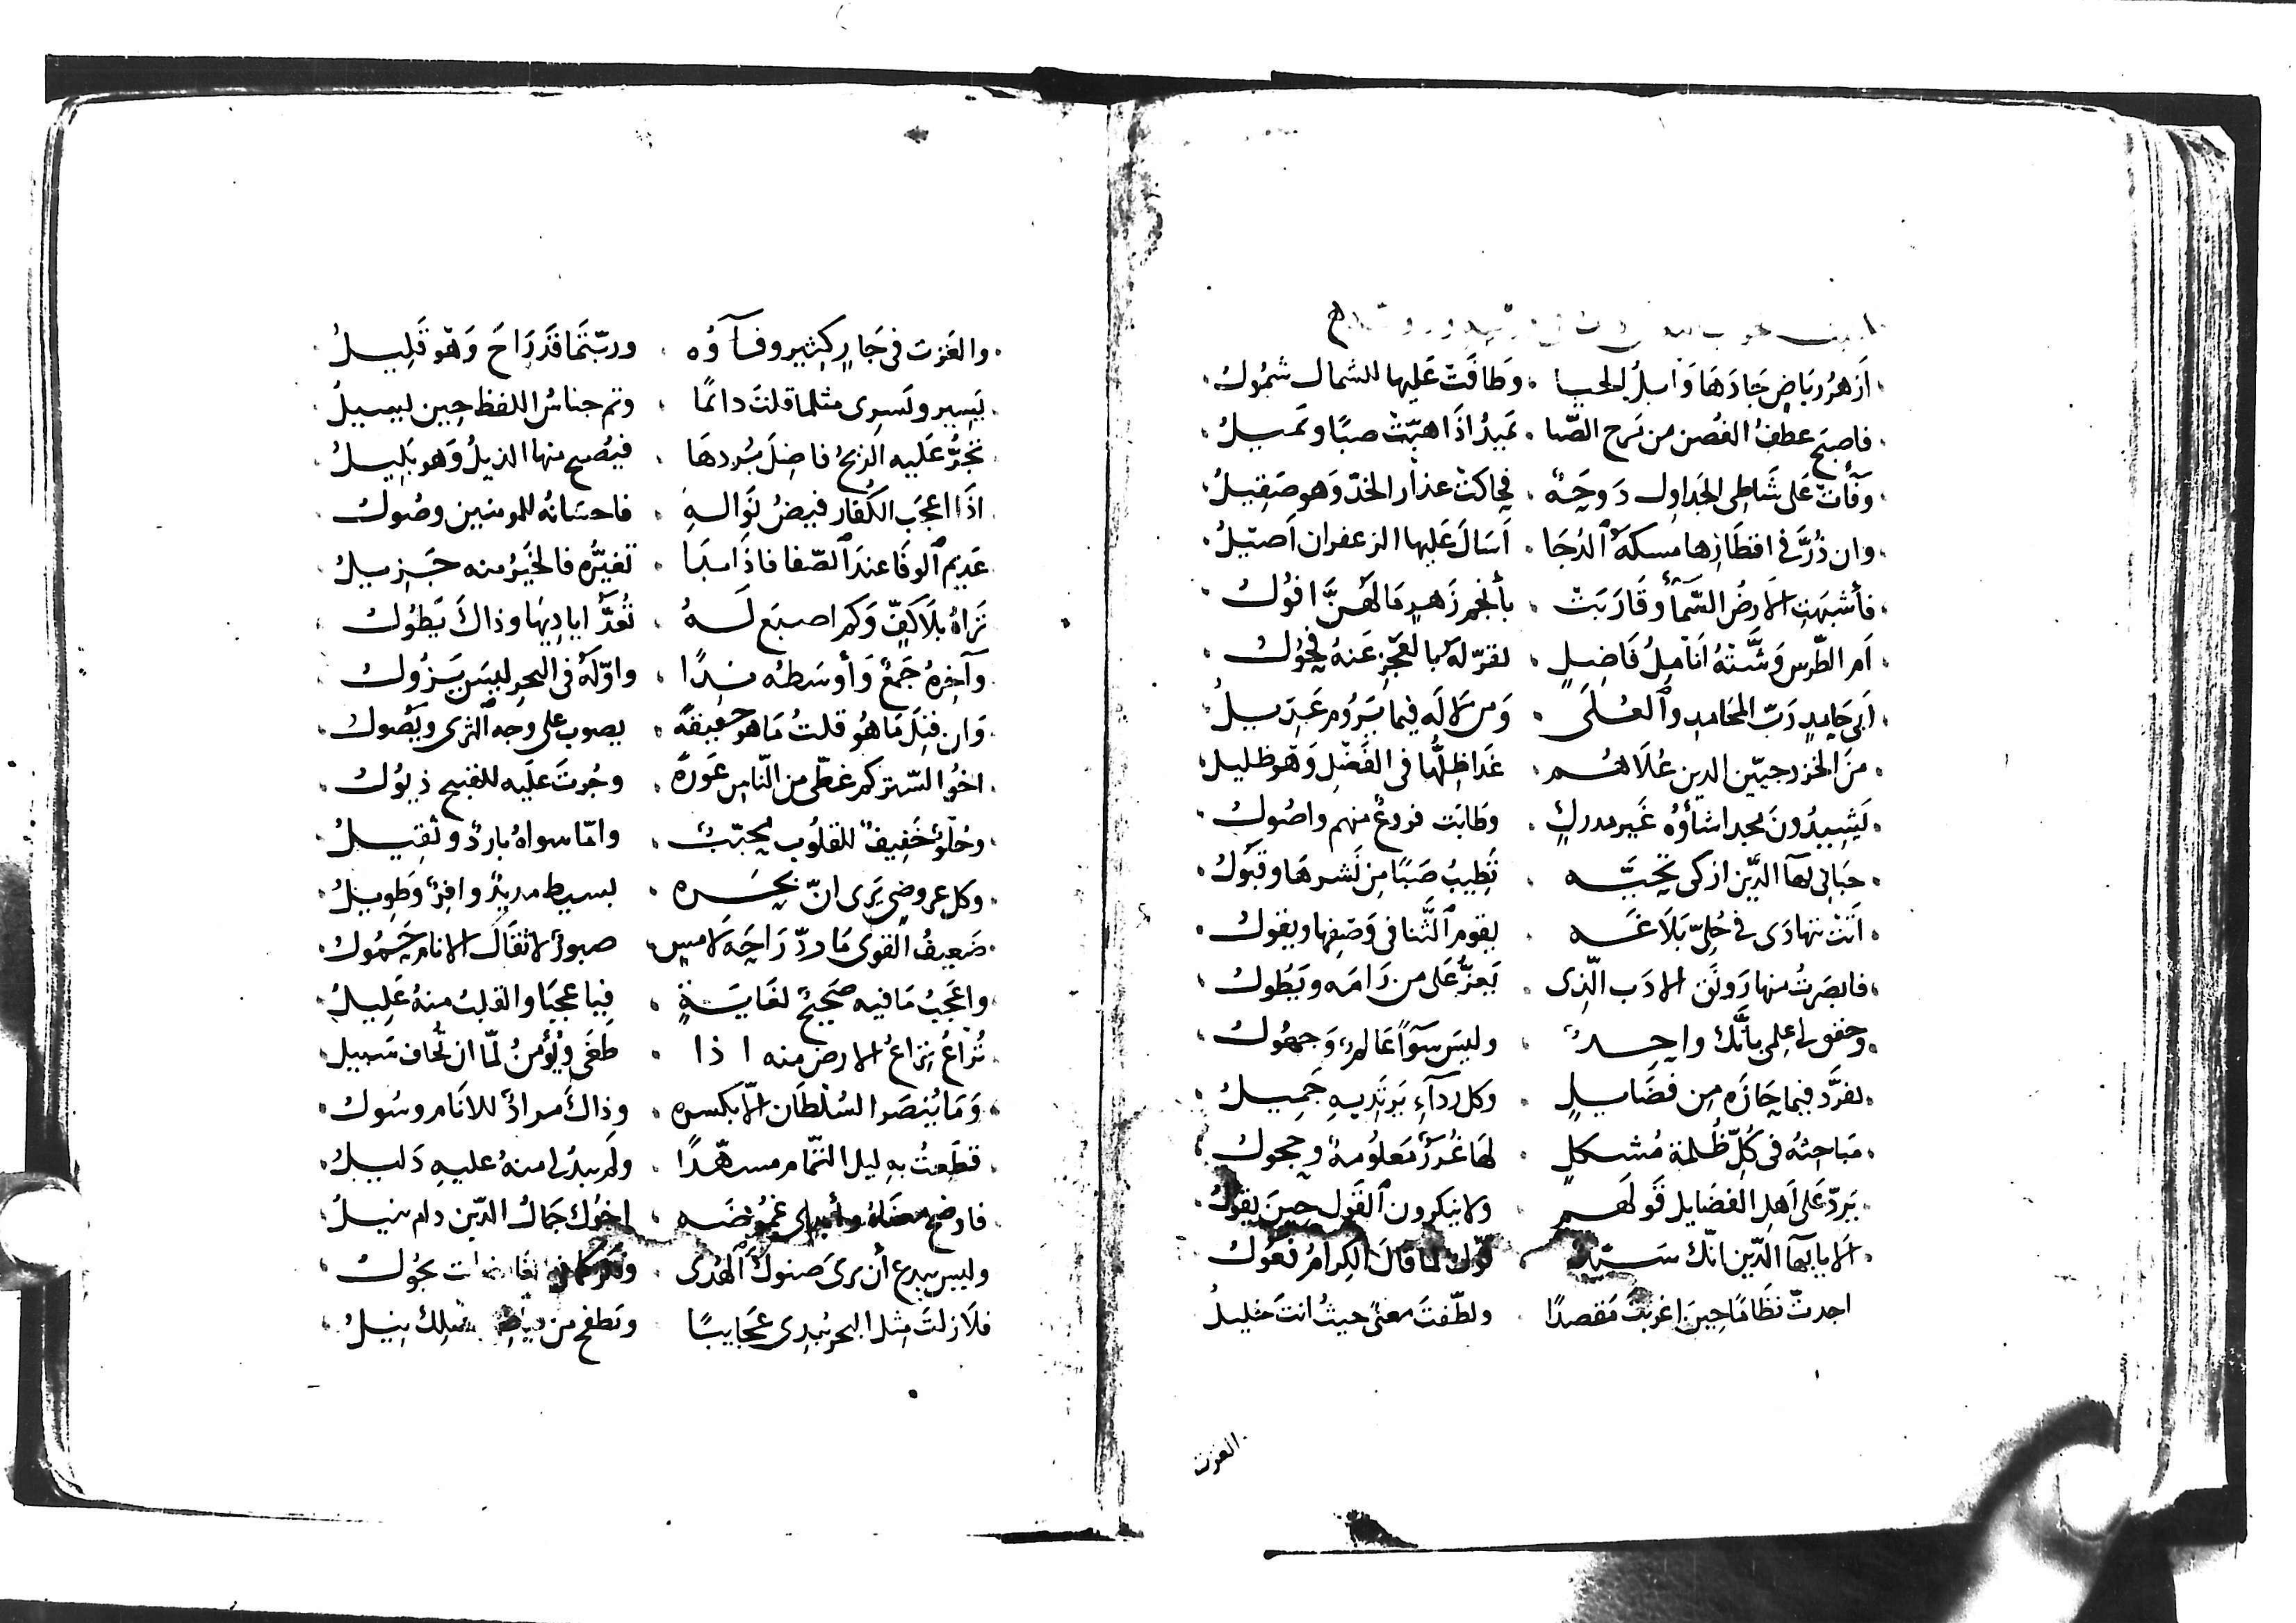 أزهر رياض جادها وابل الحيا . وطافت عليها للشمال شمول
فاصبح عطف الغصن من مرح الصبا . تميد اذا هبت صبا وتميل
وفات على شاطى الجداول دوحة . فحاكت عذار الخد وهو صقيل
وان ذر فى اقطارها مسكة الدجا . اسال عليها الزعفران اصيل
فأشبهت الارض السماء وقاربت . بأنجم زهر ما لهن افول
ام الطرس وشته انامل فاضل . تقر له بالعجز عنه فحول
ابى حامد رب المحامد والعلى . ومن لا له فيما يروم عديل
من الخزرجيين الدين علاهم . غدا ظلها فى الفضل وهو ظليل
يشيدون مجدا شأوه غير مدرك . وطابت فروع منهم واصول
حبانى بهآ الدين ازكى تحية . تطيب صبا من نشرها وقبول
أتت تتهادى فى حلى بلاغة . يقوم الثنا فى وصفها ويقول
فابصرت منها رونق الادب الذى . يعز على من رامه ويطول
وحقق لى علمى بأنك واحد . وليس سوآ عالم وجهول
تفرد فيما حازه من فضايل . وكل ردآء يرتديه جميل
مباحثه فى كل ظلمة مشكل . لها غرر معلومة وحجول
يرد على اهل الفضايل قولهم . ولا ينكرون القول حين يقول
الا يا بهآ الدين انك سيد . قؤل لما قال الكرام فعول
اجدت نظاما حين اغربت مقصدا . ولطفت معنى حيث انت خليل
الغزت
والغزت فى جار كثير وفآؤه . وربتما قد راح وهو قليل
يسير ويسرى مثلما قلت دائما . وتم جناس اللفظ حين يسيل
تجر عليه الريح فاضل بردها . فيصبح منها الذيل وهو بليل
اذا اعجب الكفار فيض نواله . فاحسانه للمومنين وصول
عديم الوفا عند الصفا فاذا بدا . تغيره فالخير منه جزيل
تراه بلا كف وكم اصبع له . تعد اياديها وذاك يطول
وآخره جمع وأوسطه ندا . واوله فى البحر ليس يزول
وان قيل ما هو قلت ما هو حقيقة . يصوب على وجه الثرى ويصول
اخو الستر كم غطى من الناس عورة . وجرت عليه للقبيح ذيول
وحلو خفيف للقلوب محبب . واما سواه بارد وثقيل
وكل عروضى يرى ان بحره . بسيط مديد وافر وطويل
ضعيف القوى ما رد راحة لامس . صبور لاثقال الانام حمول
واعجب ما فيه صحيح لغاية . فيا عجبا والقلب منه عليل
تراع بزاع الارض منه اذا . طغى ويؤمن لما ان تخاف سبيل
وما ينصر السلطان الا بكسره . وذاك مراد للانام وسول
قطعت به ليل التمام مسهدا . ولم يبد لى منه عليه دليل
فاوضح معناه وأبدى غموضه . اخوك جمال الدين دام ينيل
وليس ببدع أن يرى صنوك الهدى . تجول
فلا زلت مثل البحر تبدى عجايبا . وتطفح من نيل